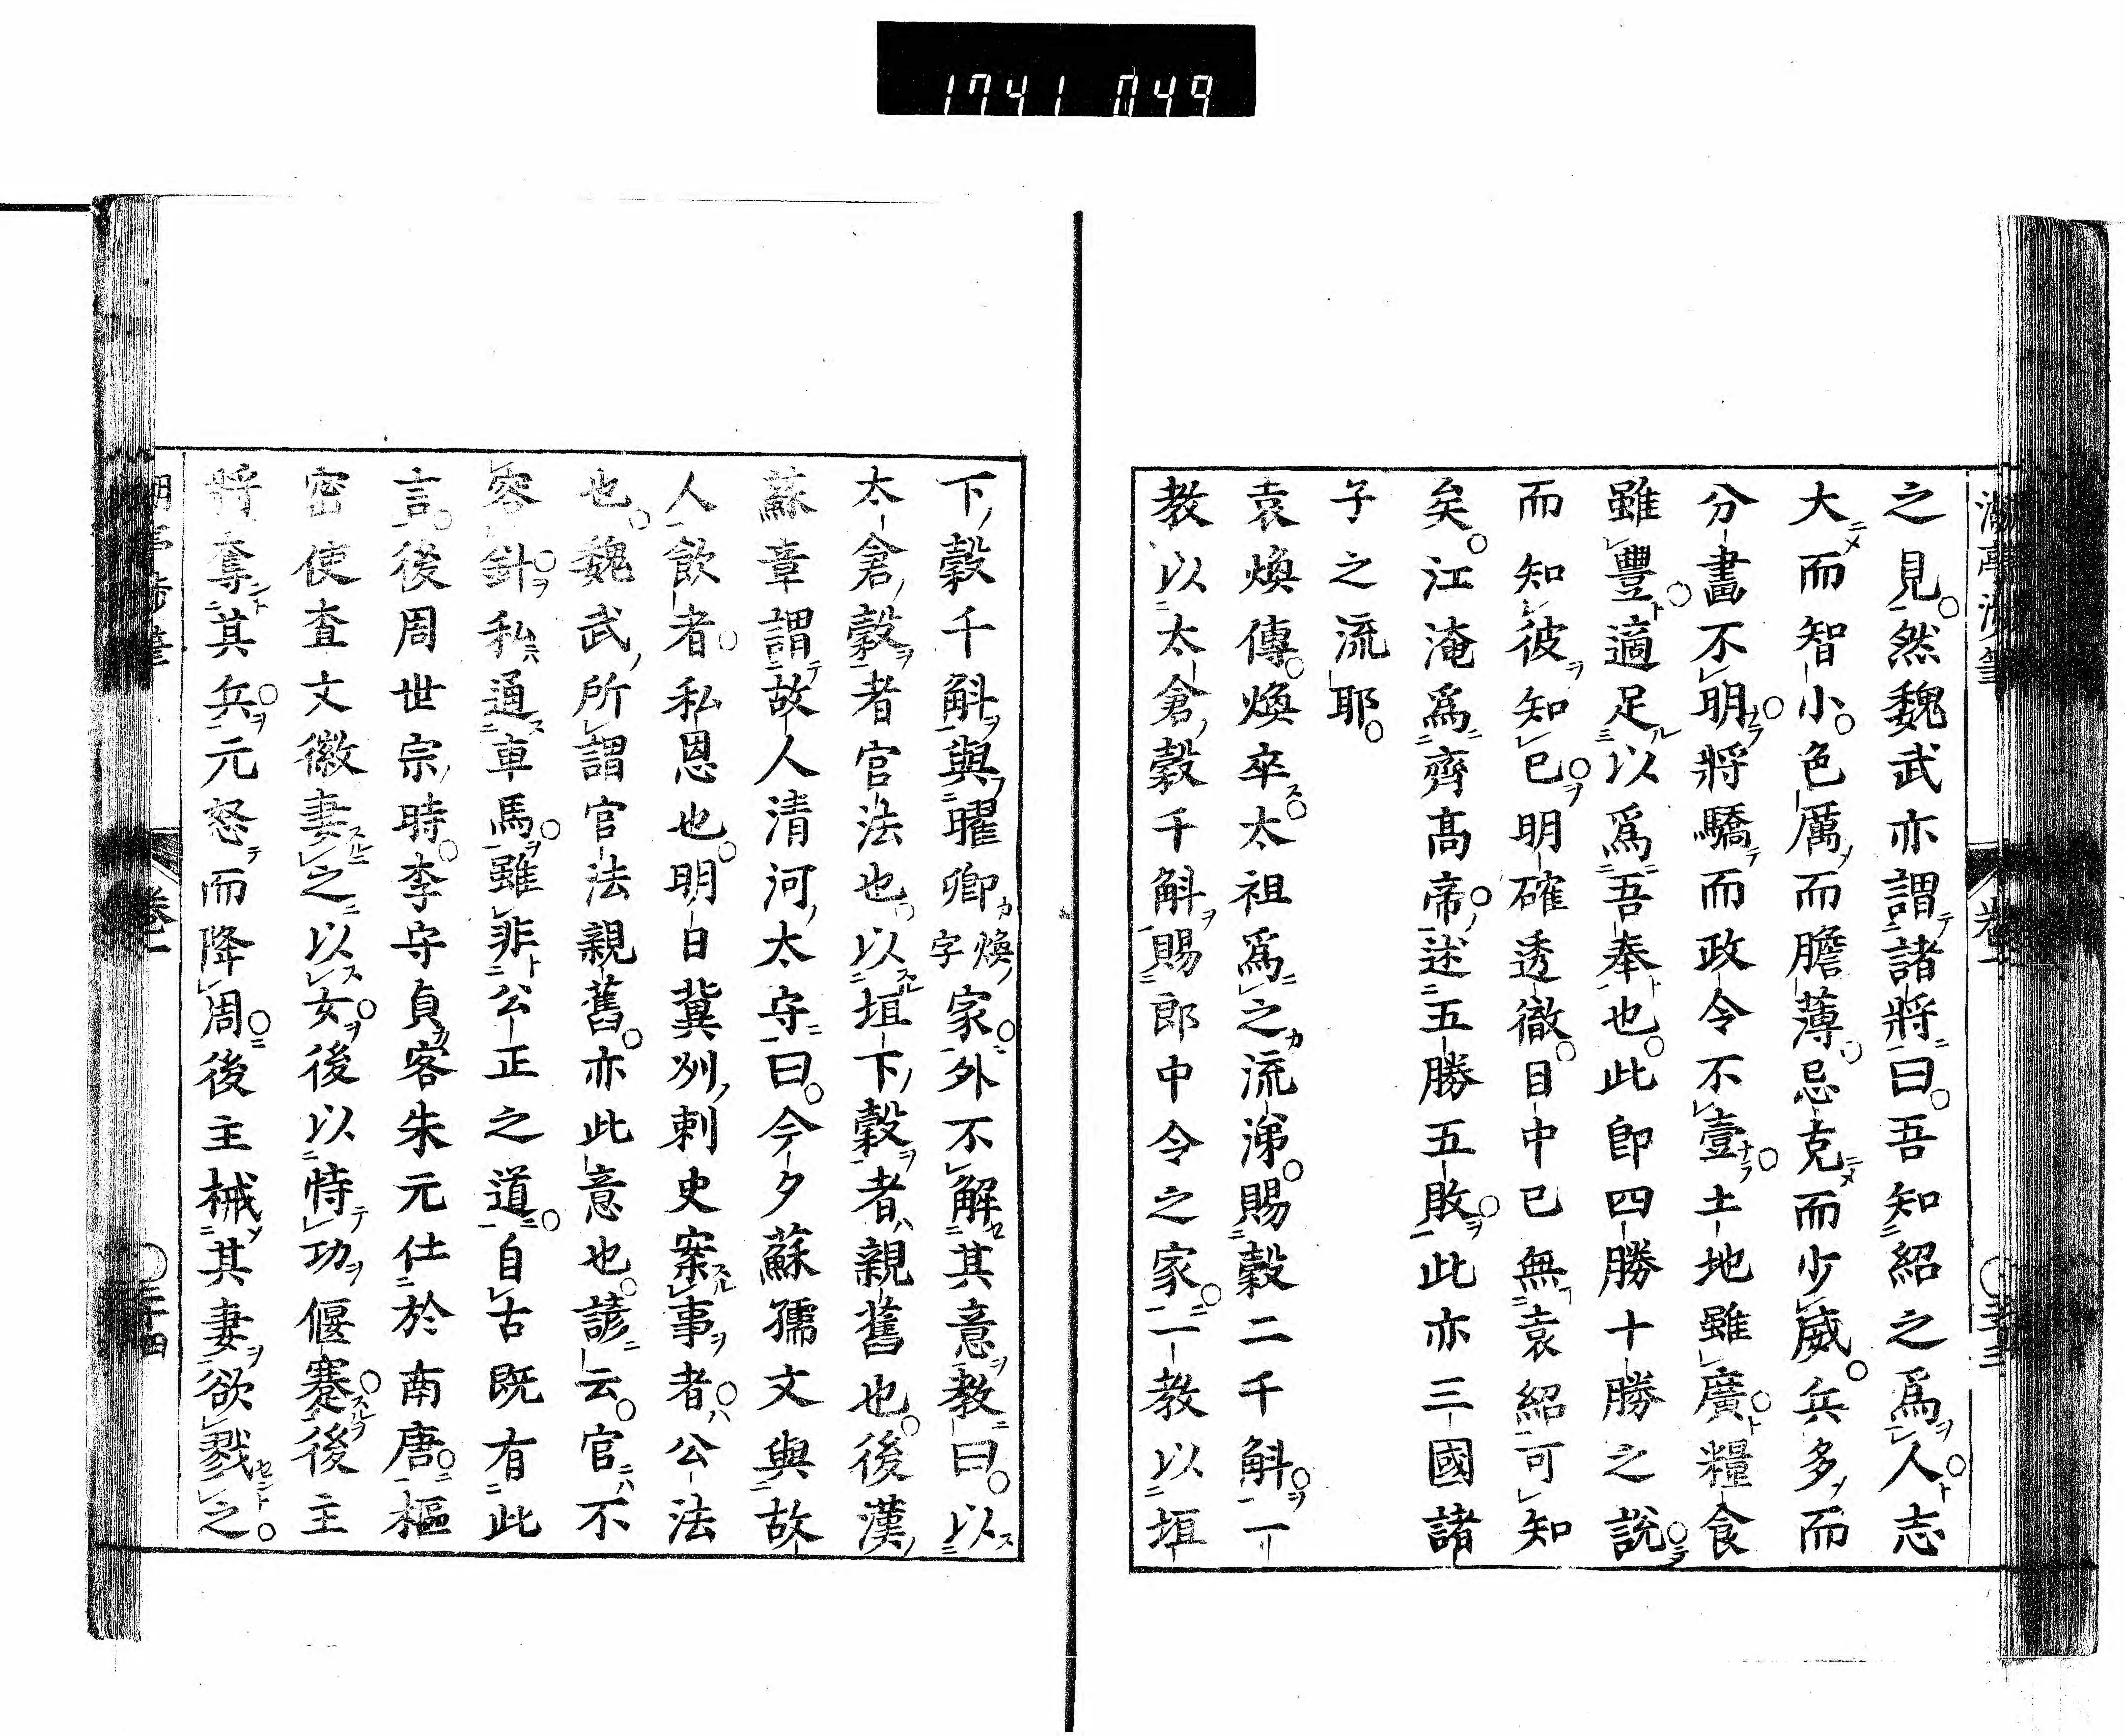 1741 049
之見然魏武亦謂諸將曰吾知紹之爲人志
大而智小色厲而膽薄忌克而少威兵多而
分畫不明將驕而政令不壹土地雖廣糧食
雖豐適足以爲吾奉也此卽四勝十勝之說
而知彼知已明確透徹目中已無袁紹可知
矣江淹爲齊高帝述五勝五敗此亦三國諸
子之流耶
袁煥傳煥卒太祖爲之流涕賜穀二千斛一
教以太倉穀千斛賜郎中令之家一教以垣
下穀千斛與曜卿煥字家外不解其意教曰以
太倉穀者官法也以垣下穀者親舊也後漢
蘇章謂故人清河太守曰今夕蘇孺文與故
人飲者私恩也明日冀州刺史案事者公法
也魏武所謂官法親舊亦此意也諺云官不
容針私通車馬雖非公正之道自古既有此
言後周世宗時李守貞客朱元仕於南唐樞
密使查文徽妻之以女後以恃功偃蹇後主
將奪其兵元怒而降周後主械其妻欲戮之
卷一